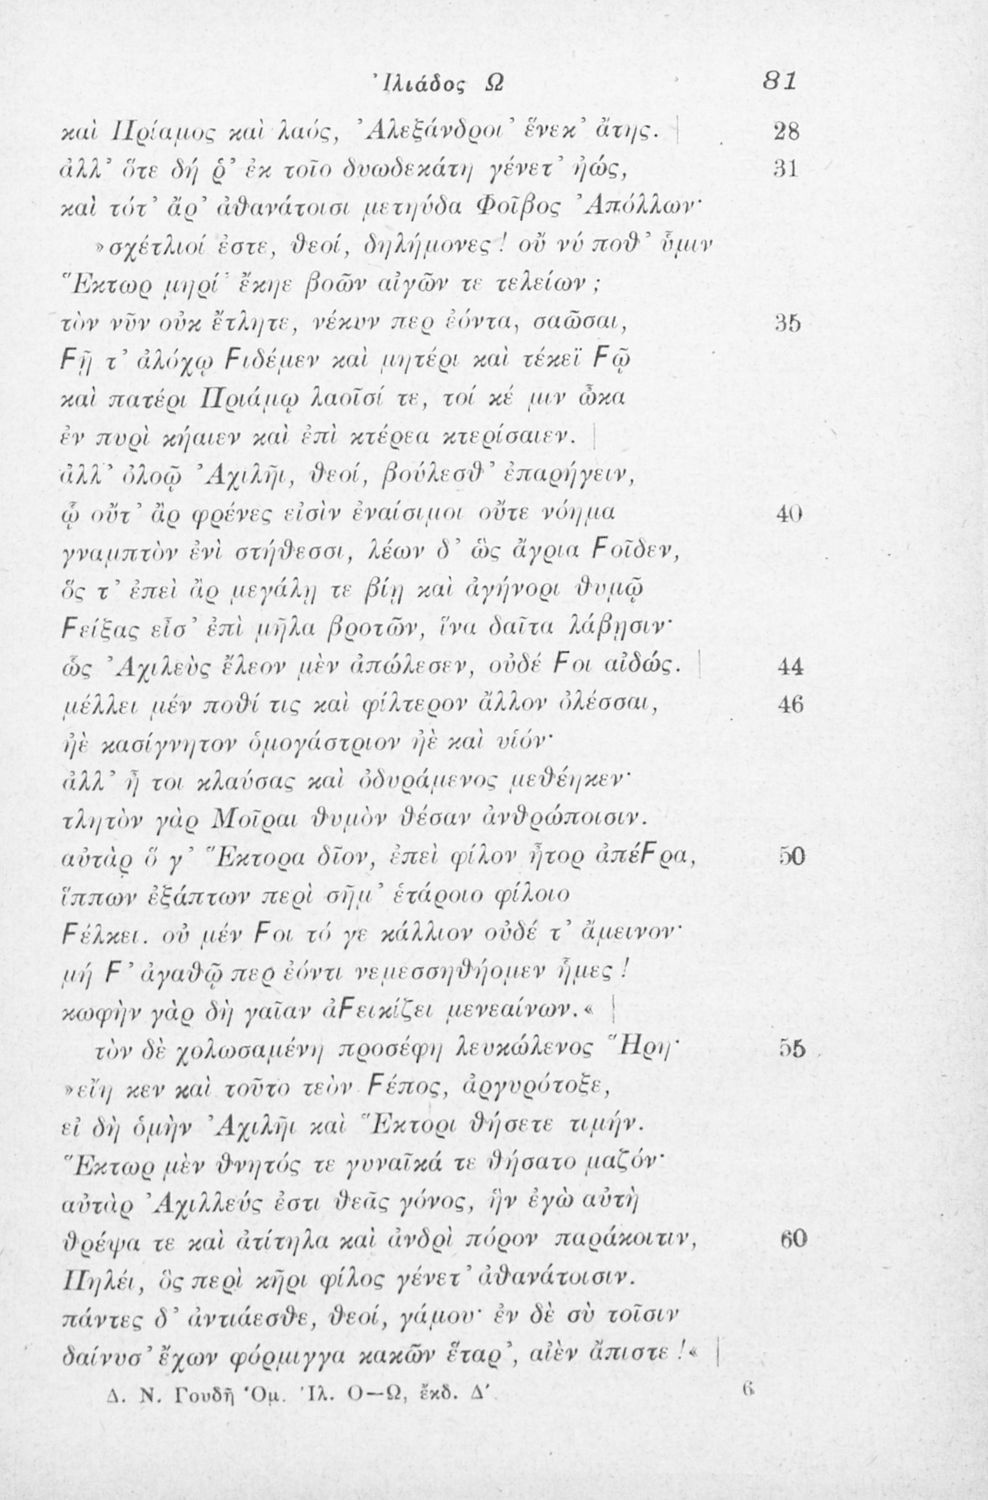 Ἰλιάδος Ω 81
καὶ Πρίαμος καὶ λαός, Ἀλεξάνδροι' ἕνεκ' ἄτης. | 28
ἀλλ' ὅτε δή ῥ' ἐκ τοῖο δυωδεκάτη γένετ' ἠώς, 31
καὶ τότ' ἄρ' ἀθανάτοισι μετηύδα Φοῖβος Ἀπόλλων·
»σχέτλιοί ἐστε, θεοί, δηλήμονες! οὔ νύ ποθ' ὗμιν
Ἕκτωρ μηρί' ἔκηε βοῶν αἰγῶν τε τελείων;
τὸν νῦν οὐκ ἔτλητε, νέκυν περ ἐόντα, σαῶσαι, 35
Ϝῇ τ' ἀλόχῳ Ϝιδέμεν καὶ μητέρι καὶ τέκεϊ Ϝῷ
καὶ πατέρι Πριάμῳ λαοῖσί τε, τοί κέ μιν ὦκα
ἐν πυρὶ κήαιεν καὶ ἐπὶ κτέρεα κτερίσαιεν. |
ἀλλ' ὀλοῷ Ἀχιλῆι, θεοί, βούλεσθ' ἐπαρήγειν,
ᾧ οὔτ' ἂρ φρένες εἰσὶν ἐναίσιμοι οὔτε νόημα 40
γναμπτὸν ἐνὶ στήθεσσι, λέων δ' ὣς ἄγρια Ϝοῖδεν,
ὅς τ' ἐπεὶ ἂρ μεγάλῃ τε βίῃ καὶ ἀγήνορι θυμῷ
Ϝείξας εἶσ' ἐπὶ μῆλα βροτῶν, ἵνα δαῖτα λάβῃσιν·
ὣς Ἀχιλεὺς ἔλεον μὲν ἀπώλεσεν, οὐδέ Ϝοι αἰδώς. | 44
μέλλει μέν ποθί τις καὶ φίλτερον ἄλλον ὀλέσσαι, 46
ἠὲ κασίγνητον ὁμογάστριον ἠὲ καὶ υἱόν·
ἀλλ' ἦ τοι κλαύσας καὶ ὀδυράμενος μεθέηκεν·
τλητὸν γὰρ Μοῖραι θυμὸν θέσαν ἀνθρώποισιν.
αὐτὰρ ὅ γ' Ἕκτορα δῖον, ἐπεὶ φίλον ἦτορ ἀπέϜρα, 50
ἵππων ἐξάπτων περὶ σῆμ' ἑτάροιο φίλοιο
Ϝέλκει. οὐ μέν Ϝοι τό γε κάλλιον οὐδέ τ' ἄμεινον·
μή Ϝ' ἀγαθῷ περ ἐόντι νεμεσσηθήομεν ἧμες!
κωφὴν γὰρ δὴ γαῖαν ἀϜεικίζει μενεαίνων.« |
τὸν δὲ χολωσαμένη προσέφη λευκώλενος Ἥρη· 55
»εἴη κεν καὶ τοῦτο τεὸν Ϝέπος, ἀργυρότοξε,
εἰ δὴ ὁμὴν Ἀχιλῆι καὶ Ἕκτορι θήσετε τιμήν.
Ἕκτωρ μὲν θνητός τε γυναῖκά τε θήσατο μαζόν·
αὐτὰρ Ἀχιλλεύς ἐστι θεᾶς γόνος, ἣν ἐγὼ αὐτὴ
θρέψα τε καὶ ἀτίτηλα καὶ ἀνδρὶ πόρον παράκοιτιν, 60
Πηλέι, ὃς περὶ κῆρι φίλος γένετ' ἀθανάτοισιν.
πάντες δ' ἀντιάεσθε, θεοί, γάμου· ἐν δὲ σὺ τοῖσιν
δαίνυσ' ἔχων φόρμιγγα κακῶν ἕταρ', αἰὲν ἄπιστε!« |
Δ. Ν. Γουδῆ Ὁμ. Ἰλ. Ο—Ω, ἔκδ. Δ'. 6